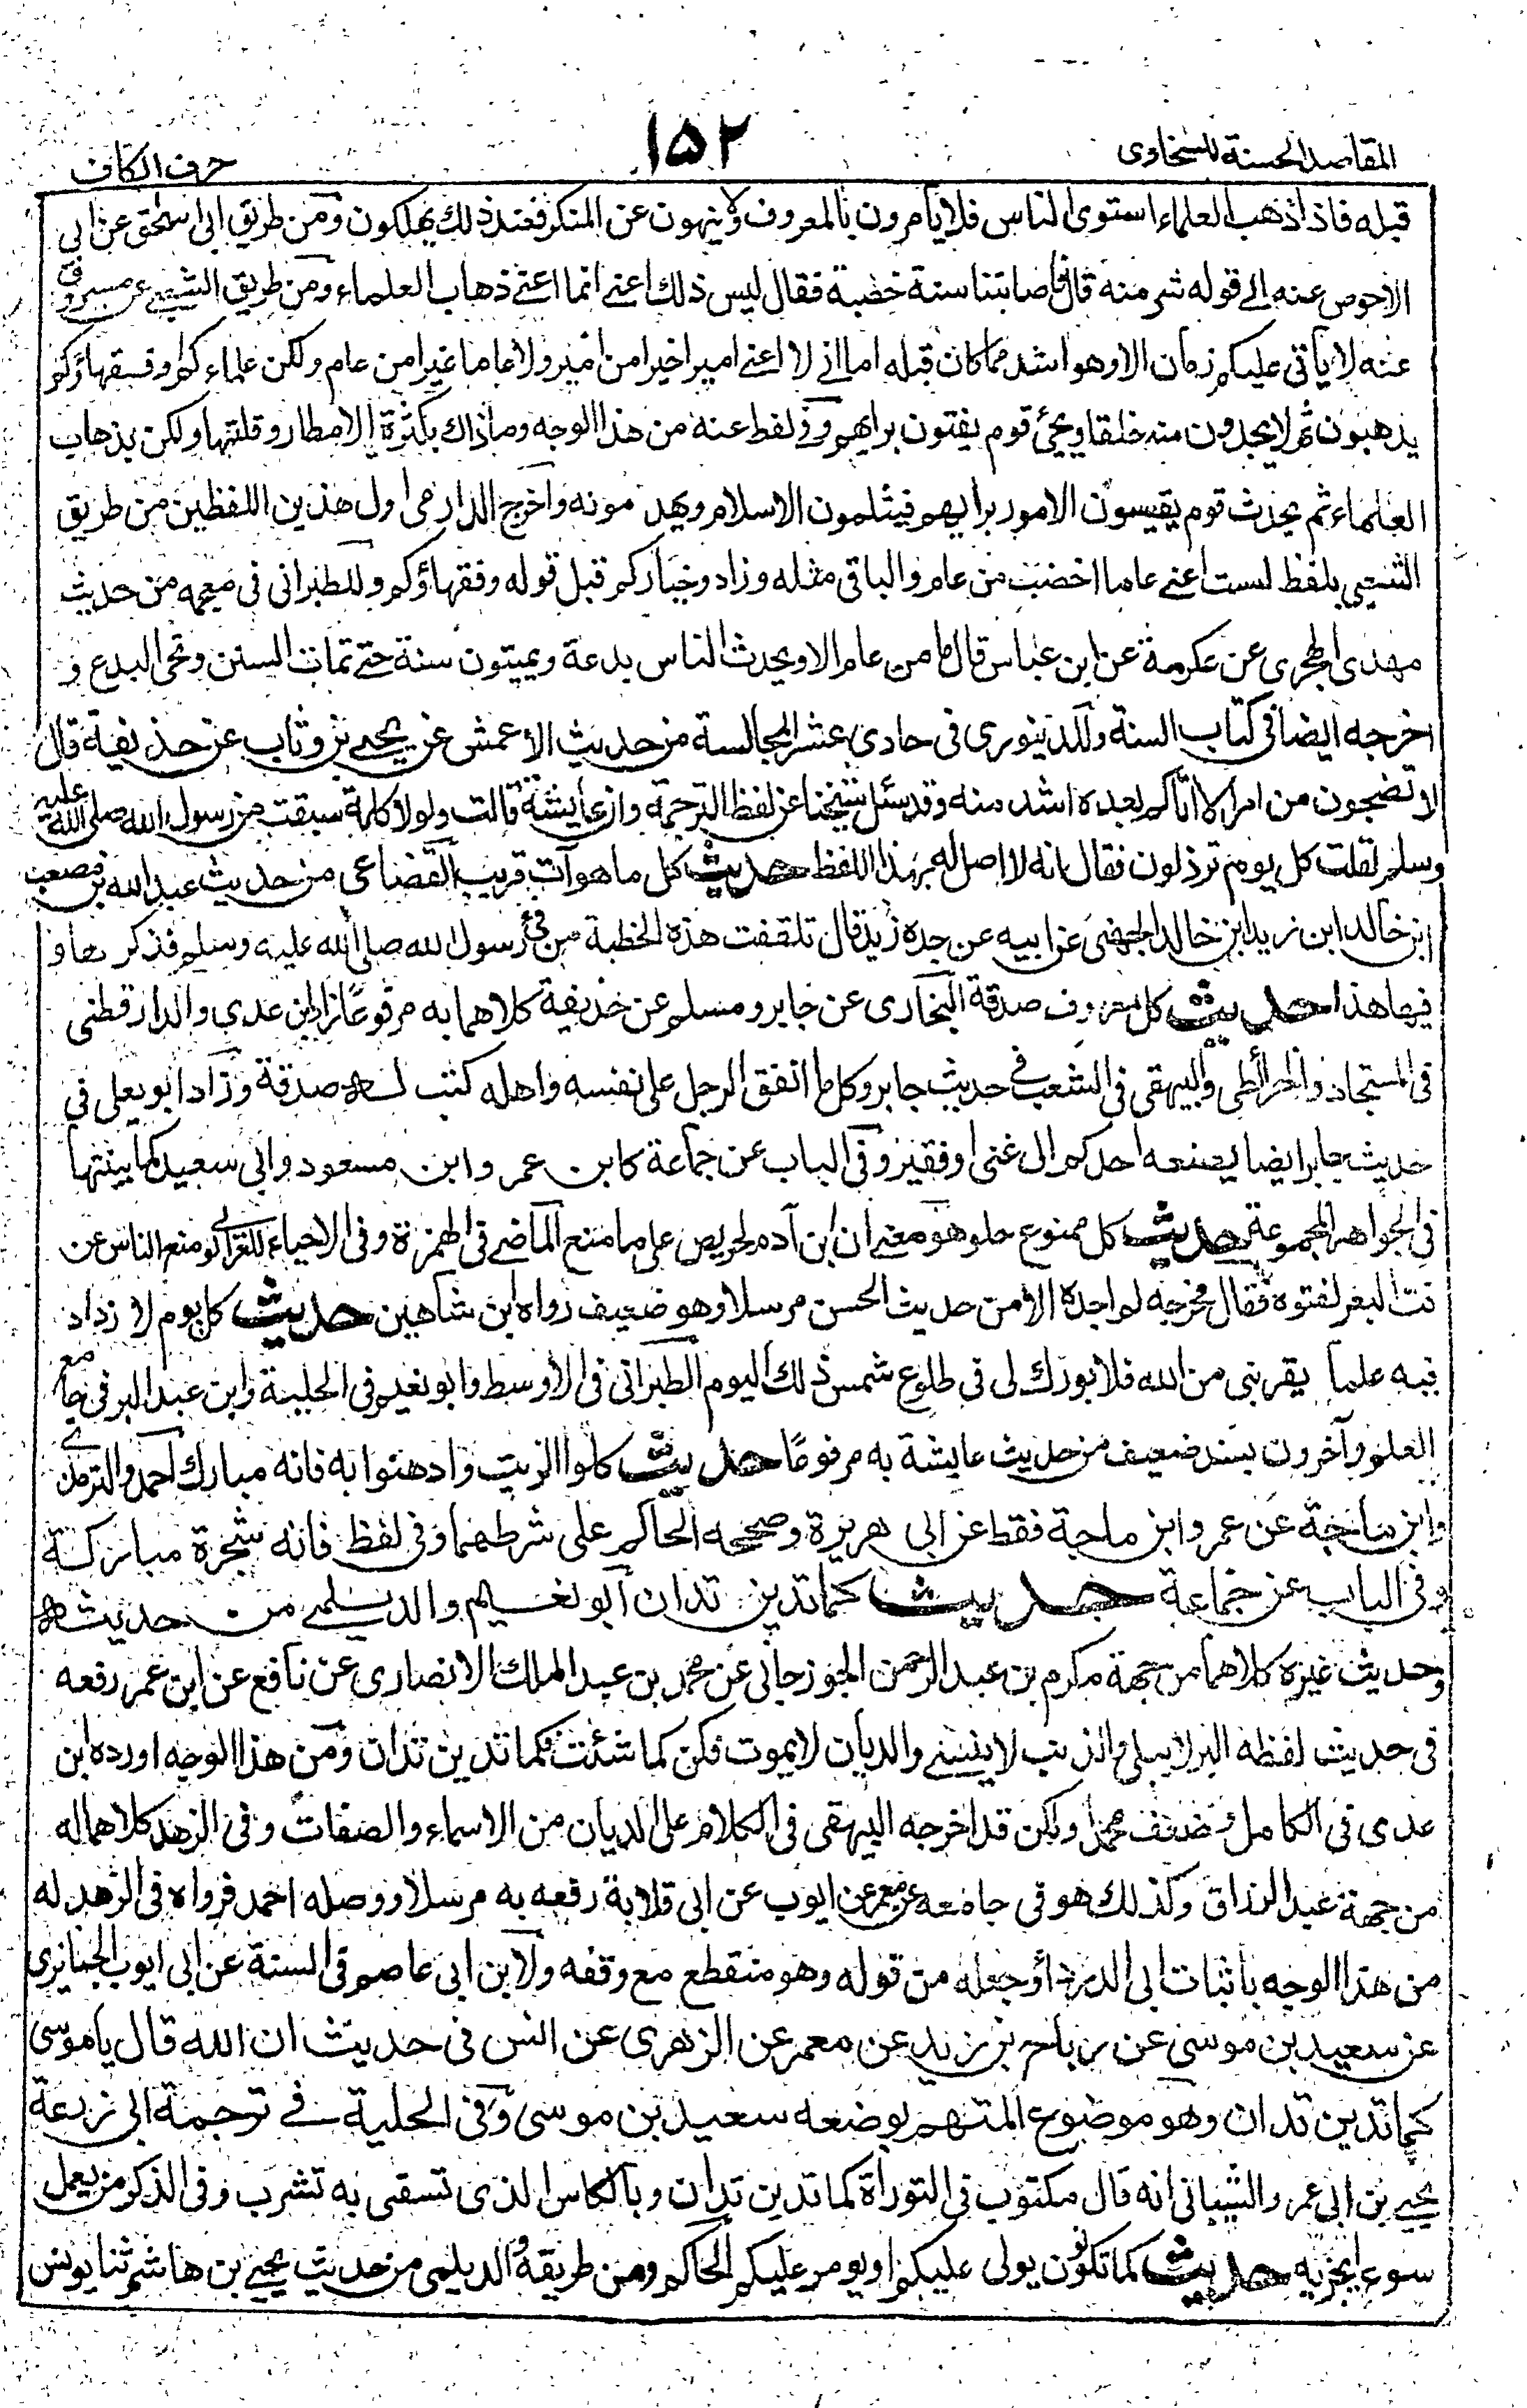 المقاصد الحسنة للسخاوى
١٥٢
حرف الكاف
قبله فاذا ذهب العلماء استوى الناس فلا يأمرون بالمعروف ولا ينهون عن المنكر فعند ذلك يهلكون ومن طريق ابى اسحق عن ابى
الاحوص عنه الى قوله شر منه قال فاصابتنا سنة خضبة فقال ليس ذلك اعنى انما اعنى ذهاب العلماء ومن طريق الشعبى عن مسروق
عنه لا يأتى عليكم زمان الا وهو اشد مما كان قبله اما انى لا اعنى اميرا خيرا من امير ولا عاما خيرا من عام ولكن علماءكم وفقهاؤكم
يذهبون ثم لا يجدون منهم خلفا ويجئ قوم يفتون برايهم وفى لفظ عنه من هذا الوجه وما ذاك بكثرة الامطار وقلتها ولكن بذهاب
العلماء ثم يحدث قوم يقيسون الامور برايهم فيثلمون الاسلام ويهدمونه واخرج الدارمى اول هذين اللفظين من طريق
الشعبى بلفظ لست اعنى عاما اخضب من عام والباقى مثله وزاد وخياركم قبل قوله وفقهاؤكم وللطبرانى فى معجمه من حديث
مهدى الهجرى عن عكرمة عن ابن عباس قال ما من عام الا ويحدث الناس بدعة ويميتون سنة حتى تمات السنن وتحى البدع و
اخرجه ايضا فى كتاب السنة وللدينورى فى حادى عشر المجالسة من حديث الاعمش عن يحيى بن وثاب عن حذيفة قال
لا تضجون من امر الا اتاكم بعده اشد منه وقد سئل شيخنا عن لفظ الترجمة وان عايشة قالت ولولا كلمة سبقت من رسول الله صلى الله عليه
وسلم لقلت كل يوم ترذلون فقال انه لا اصل له بهذا اللفظ حديث كل ما هو آت قريب القضاعى من حديث عبد الله بن مصعب
ابن خالد ابن زيد ابن خالد الجهنى عن ابيه عن جده زيد قال تلقفت هذه الخطبة من فى رسول الله صلى الله عليه وسلم فذكرها و
فيها هذا حديث كل معروف صدقة البخارى عن جابر ومسلم عن حذيفة كلاهما به مرفوعا زاد ابن عدى والدارقطنى
فى المستجاد والخرائطى والبيهقى فى الشعب فى حديث جابر وكل ما انفق الرجل على نفسه واهله كتب له صدقة وزاد ابو يعلى فى
حديث جابر ايضا يصنعه احدكم الى غنى او فقير وفى الباب عن جماعة كابن عمر وابن مسعود وابى سعيد كما بينتها
فى الجواهر المجموعة حديث كل ممنوع حلو هو معنى ان ابن آدم لحريص على ما منع الماضى فى الهمزة وفى الاحياء للغزالى لو منع الناس عن
فت البعر لفتوه فقال مخرجه لم اجده الا من حديث الحسن مرسلا وهو ضعيف رواه ابن شاهين حديث كل يوم لا ازداد
فيه علما يقربنى من الله فلا بورك لى فى طلوع شمس ذلك اليوم الطبرانى فى الاوسط وابو نعيم فى الحلية وابن عبد البر فى جامع
العلم وآخرون بسند ضعيف من حديث عايشة به مرفوعا حديث كلوا الزيت وادهنوا به فانه مبارك احمد والترمذى
وابن ماجة عن عمر وابن ماجة فقط عن ابى هريرة وصححه الحاكم على شرطهما وفى لفظ فانه شجرة مباركة
وفى الباب عن جماعة حديث كما تدين تدان ابو نعيم والديلمى من حديثه
وحديث غيره كلاهما من جهة مكرم بن عبد الرحمن الجوزجانى عن محمد بن عبد الملك الانصارى عن نافع عن ابن عمر رفعه
فى حديث لفظه البر لا يبلى والذنب لا ينسى والديان لا يموت فكن كما شئت فكما تدين تدان ومن هذا الوجه اورده ابن
عدى فى الكامل وضعف محمدا ولكن قد اخرجه البيهقى فى الكلام على الديان من الاسماء والصفات وفى الزهد كلاهما له
من جهة عبد الرزاق وكذلك هو فى جامعه عن معمر عن ايوب عن ابى قلابة رفعه به مرسلا ووصله احمد فرواه فى الزهد له
من هذا الوجه باثبات ابى الدرداء وجعله من قوله وهو منقطع مع وقفه ولابن ابى عاصم فى السنة عن ابى ايوب الجنايزى
عن سعيد بن موسى عن رباح بن زيد عن معمر عن الزهرى عن انس فى حديث ان الله قال يا موسى
كما تدين تدان وهو موضوع المتهم بوضعه سعيد بن موسى وفى الحلية فى ترجمة ابى زرعة
يحيى بن ابى عمرو الشيبانى انه قال مكتوب فى التوراة كما تدين تدان وبالكاس الذى تسقى به تشرب وفى الذكر من يعمل
سوء يجز به حديث كما تكونو يولى عليكم او يومر عليكم الحاكم ومن طريقه الديلمى من حديث يحيى بن هاشم ثنا يونس